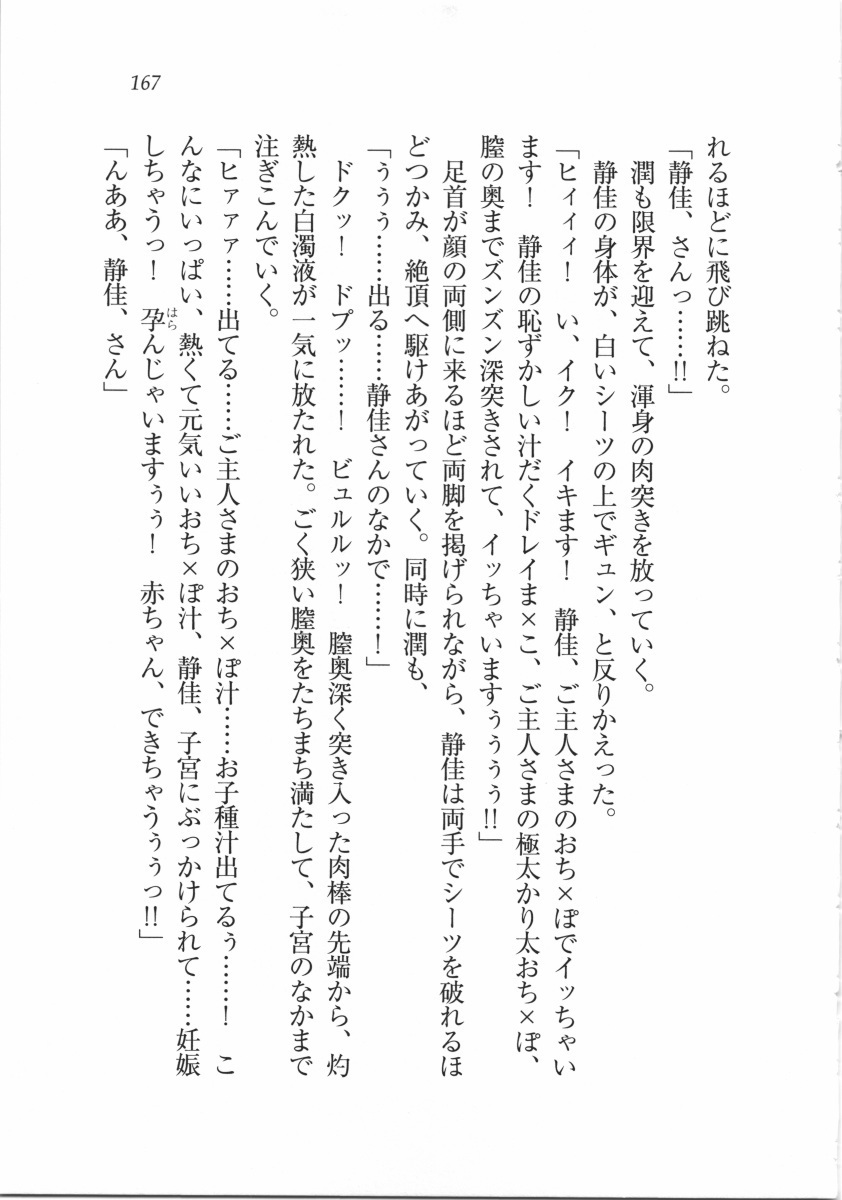 167
れるほどに飛び跳ねた。
「静佳、さんっ……‼」
潤も限界を迎えて、渾身の肉突きを放っていく。
静佳の身体が、白いシーツの上でギュン、と反りかえった。
「ヒィィィ！　い、イク！　イキます！　静佳、ご主人さまのおち×ぽでイッちゃい
ます！　静佳の恥ずかしい汁だくドレイま×こ、ご主人さまの極太かり太おち×ぽ、
膣の奥までズンズン深突きされて、イッちゃいますぅぅぅぅ‼」
足首が顔の両側に来るほど両脚を掲げられながら、静佳は両手でシーツを破れるほ
どつかみ、絶頂へ駆けあがっていく。同時に潤も、
「ぅぅぅ……出る……静佳さんのなかで……！」
ドクッ！　ドプッ……！　ビュルルッ！　膣奥深く突き入った肉棒の先端から、灼
熱した白濁液が一気に放たれた。ごく狭い膣奥をたちまち満たして、子宮のなかまで
注ぎこんでいく。
「ヒァァァ……出てる……ご主人さまのおち×ぽ汁……お子種汁出てるぅ……！　こ
んなにいっぱい、熱くて元気いいおち×ぽ汁、静佳、子宮にぶっかけられて……妊娠
しちゃうっ！　孕んじゃいますぅぅ！　赤ちゃん、できちゃうぅぅっ‼」
はら
「んああ、静佳、さん」